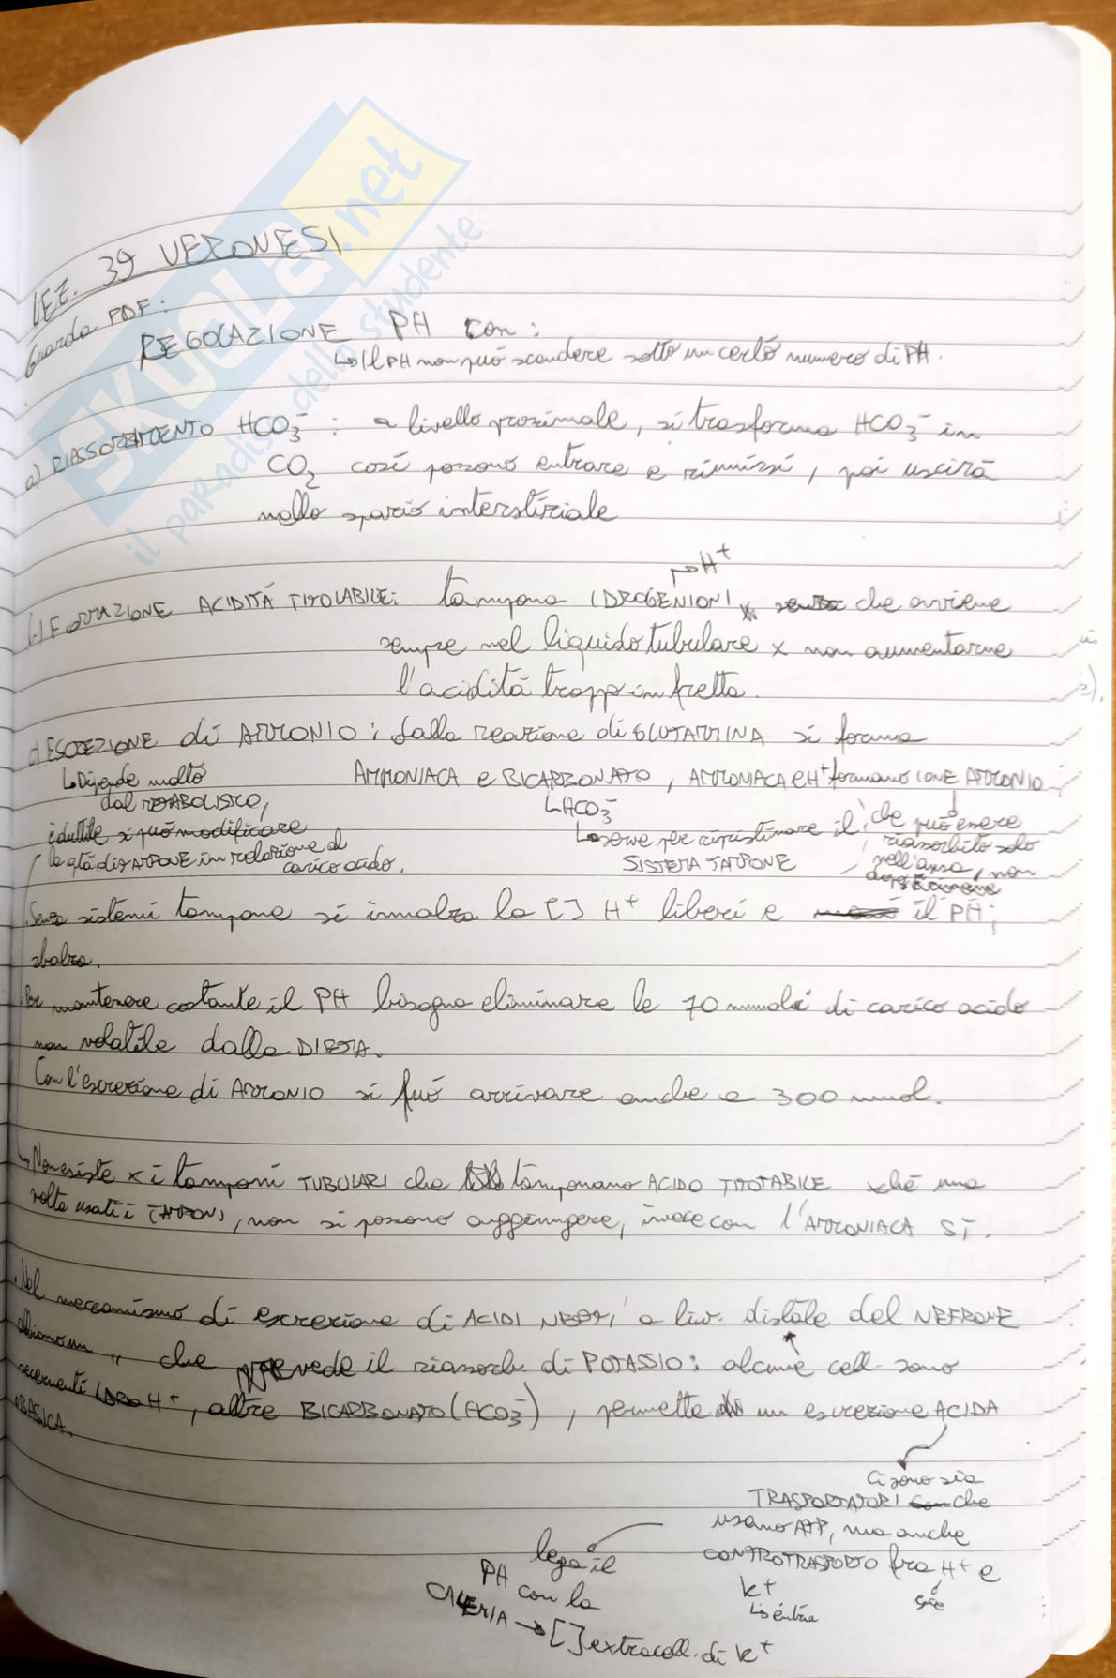 LEZ. 39 VERONESI
Guarda PDF:
REGOLAZIONE PH con:
↳ Il PH non può scendere sotto un certo numero di PH.
a) RIASSORBIMENTO HCO3⁻ : a livello prossimale, si trasforma HCO3⁻ in
CO2 così possono entrare e riunirsi, poi uscirà
nello spazio interstiziale
→ H⁺
FORMAZIONE ACIDITÁ TITOLABILE: tampona IDROGENIONI che avviene
sempre nel liquido tubulare x non aumentarne
l'acidità tropp in fretta.
ESCREZIONE di AMMONIO : dalla reazione di GLUTAMMINA si forma
AMMONIACA e BICARBONATO, AMMONIACA e H⁺ formano IONE AMMONIO
↳ Dipende molto
dal METABOLISMO,
è duttile si può modificare
la qtà di TAMPONE in relazione al
carico acido.
↳ HCO3⁻
↳ serve per ripristinare il
SISTEMA TAMPONE
che può essere
riassorbito solo
nell'ansa, non
Senza sistemi tampone si innalza la [] H⁺ liberi e il PH
sbalza.
Per mantenere costante il PH bisogna eliminare le 70 mmoli di carico acido
non volatile dalla DIETA.
Con l'escrezione di AMMONIO si può arrivare anche a 300 mmol.
Non esiste x i tamponi TUBULARI che tamponano ACIDO TITOTABILE xché una
volta usati i TAMPONI, non si possono aggiungere, invece con l'AMMONIACA SI.
Nel meccanismo di escrezione di ACIDI a liv. distale del NEFRONE
abbiamo un che prevede il riassorb. di POTASSIO: alcune cell. sono
secernenti H⁺, altre BICARBONATO (HCO3⁻), permette un escrezione ACIDA
BASICA.
Ci sono sia
TRASPORTATORI che
usano ATP, ma anche
CONTROTRASPORTO fra H⁺ e
K⁺
↳ entra
esce
lega il
PH con la
CALIEMIA → [] extracell. di K⁺
SKUOLA.net
il paradiso dello studente